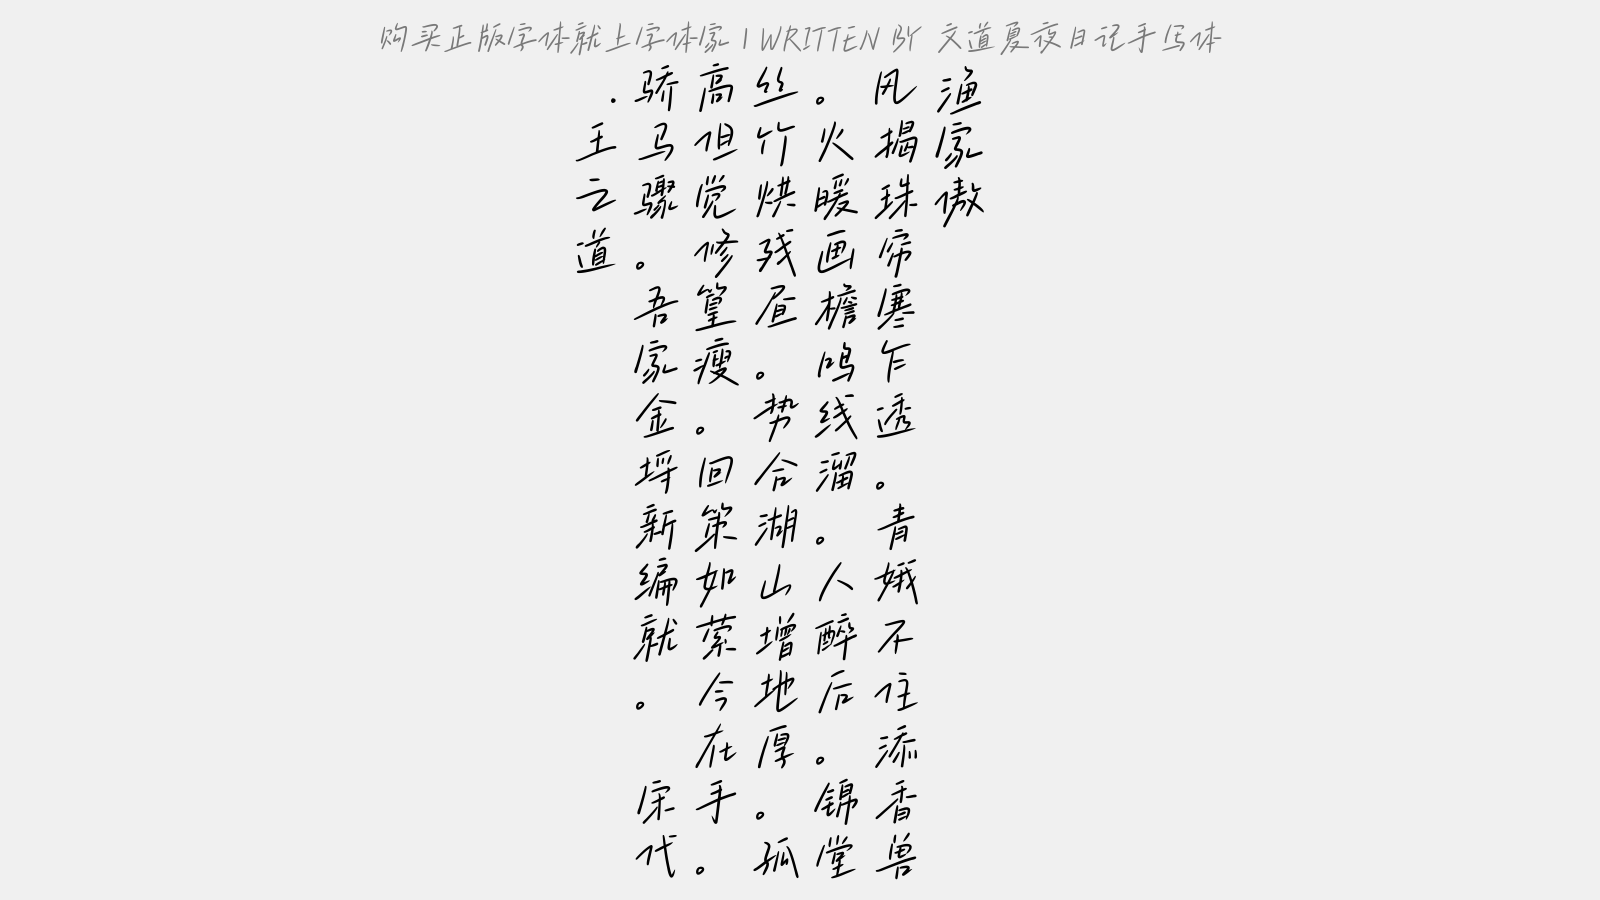 购买正版字体就上字体家 | WRITTEN BY 文道夏夜日记手写体
渔家傲
风揭珠帘寒乍透。青娥不住添香兽
丝。火暖画檐鸣线溜。人醉后。锦堂
丝竹烘残昼。势合湖山增地厚。孤
高但觉修篁瘦。回策如萦今在手。
骄马骤。吾家金埒新编就。 宋代
·王之道